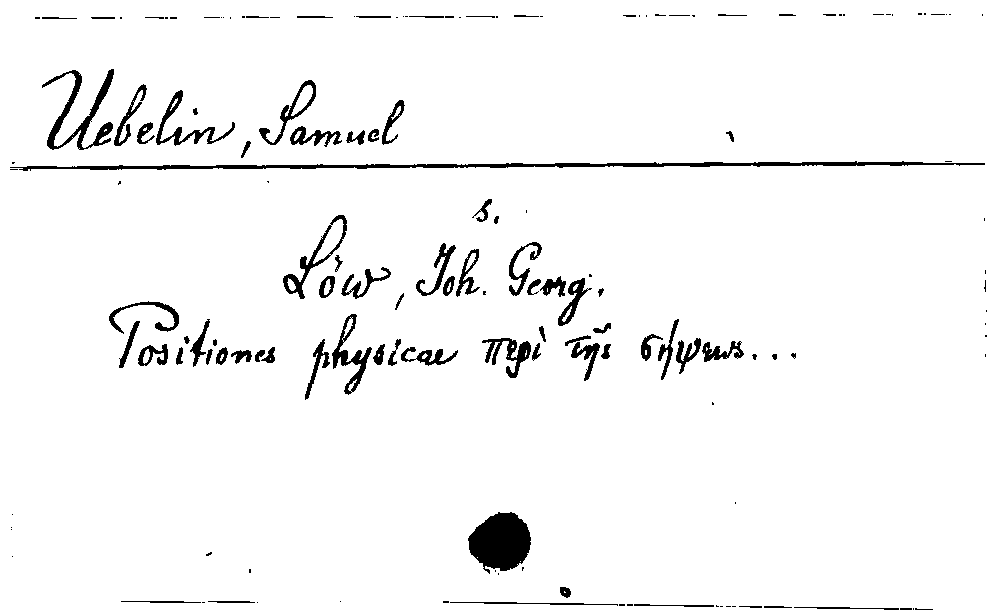 Uebelin, Samuel
s.
Löw, Joh. Georg.
Positiones physicae περὶ τῆς σήψεως...